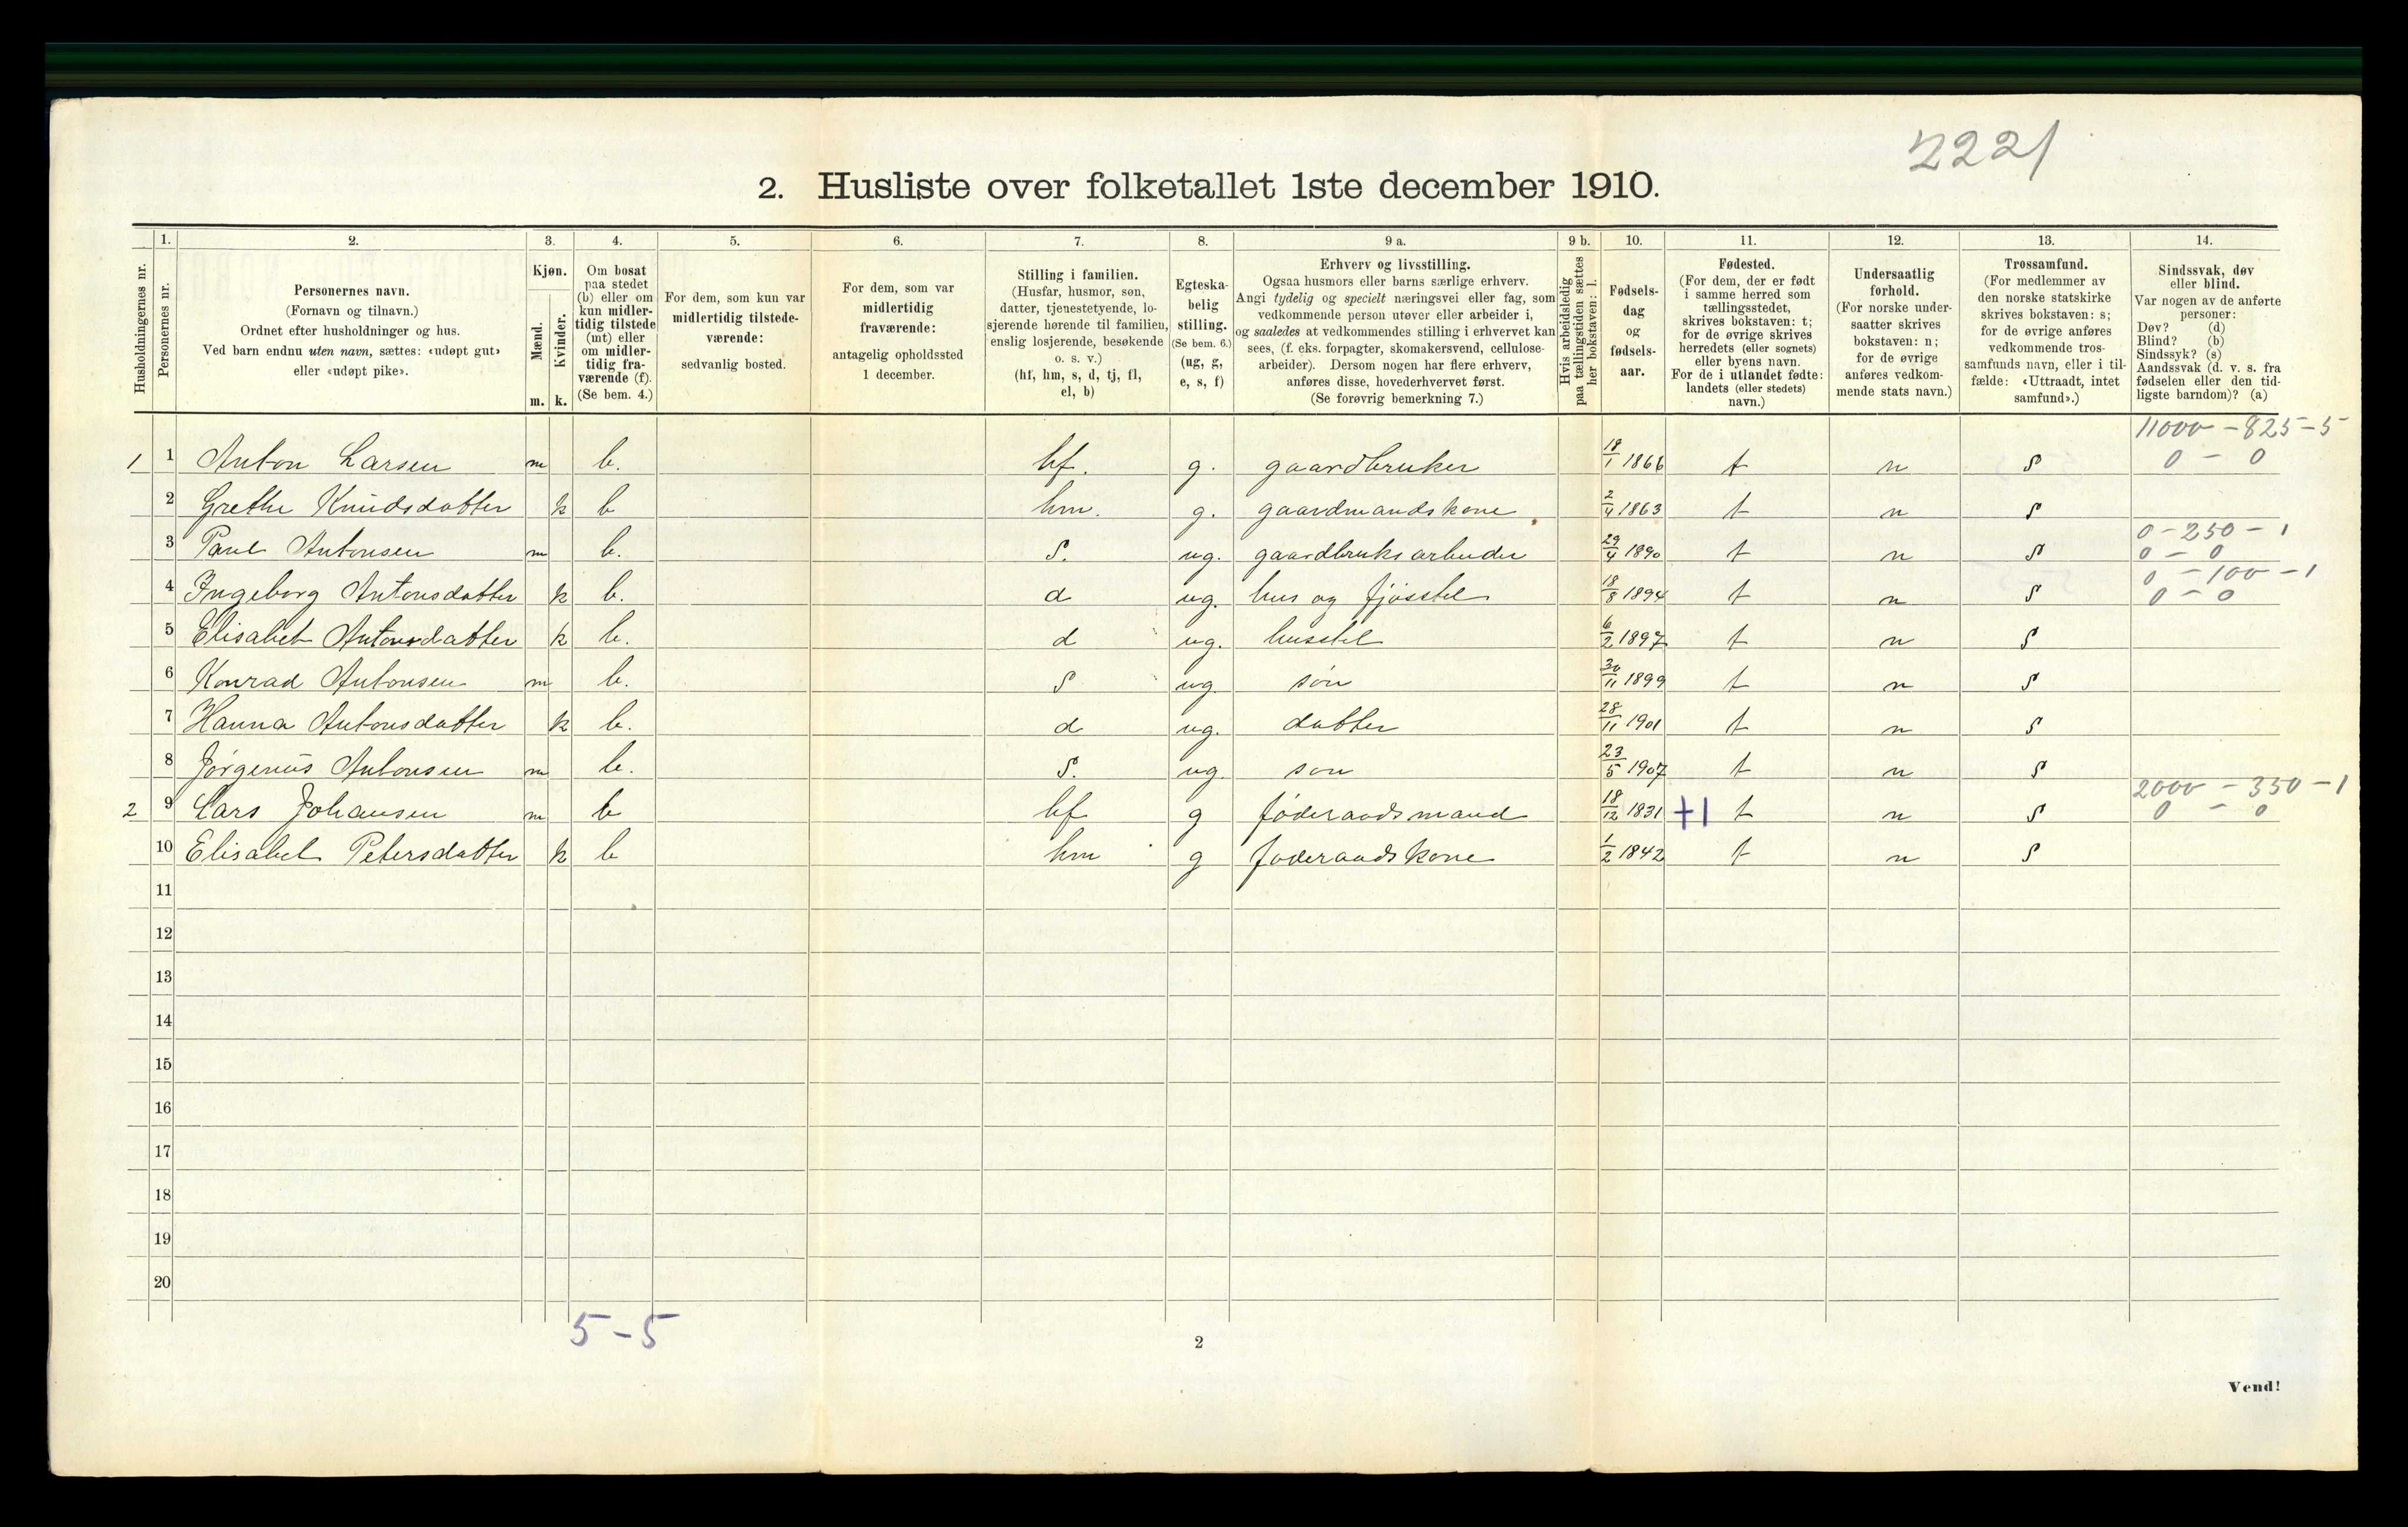 2221
2. Husliste over folketallet 1ste december 1910.
1. 2. 3. 4. 5. 6. 7. 8. 9 a. 9 b. 10. 11. 12. 13. 14.
Husholdningernes nr.
Personernes nr.
Personernes navn.
(Fornavn og tilnavn.)
Ordnet efter husholdninger og hus.
Ved barn endnu uten navn, sættes: «udøpt gut»
eller «udøpt pike».
Kjøn.
Mænd.
Kvinder.
m. k.
Om bosat
paa stedet
(b) eller om
kun midler-
tidig tilstede
(mt) eller
om midler-
tidig fra-
værende (f).
(Se bem. 4.)
For dem, som kun var
midlertidig tilstede-
værende:
sedvanlig bosted.
For dem, som var
midlertidig
fraværende:
antagelig opholdssted
1 december.
Stilling i familien.
(Husfar, husmor, søn,
datter, tjenestetyende, lo-
sjerende hørende til familien,
enslig losjerende, besøkende
o. s. v.)
(hf, hm, s, d, tj, fl,
el, b)
Egteska-
belig
stilling.
(Se bem. 6.)
(ug, g,
e, s, f)
Erhverv og livsstilling.
Ogsaa husmors eller barns særlige erhverv.
Angi tydelig og specielt næringsvei eller fag, som
vedkommende person utøver eller arbeider i,
og saaledes at vedkommendes stilling i erhvervet kan
sees, (f. eks. forpagter, skomakersvend, cellulose-
arbeider). Dersom nogen har flere erhverv,
anføres disse, hovederhvervet først.
(Se forøvrig bemerkning 7.)
Hvis arbeidsledig
paa tællingstiden sættes
her bokstaven: l.
Fødsels-
dag
og
fødsels-
aar.
Fødested.
(For dem, der er født
i samme herred som
tællingsstedet,
skrives bokstaven: t;
for de øvrige skrives
herredets (eller sognets)
eller byens navn.
For de i utlandet fødte:
landets (eller stedets)
navn.)
Undersaatlig
forhold.
(For norske under-
saatter skrives
bokstaven: n;
for de øvrige
anføres vedkom-
mende stats navn.)
Trossamfund.
(For medlemmer av
den norske statskirke
skrives bokstaven: s;
for de øvrige anføres
vedkommende tros-
samfunds navn, eller i til-
fælde: «Uttraadt, intet
samfund».)
Sindssvak, døv
eller blind.
Var nogen av de anførte
personer:
Døv? (d)
Blind? (b)
Sindssyk? (s)
Aandssvak (d. v. s. fra
fødselen eller den tid-
ligste barndom)? (a)
11000 - 825 - 5
1 1 Anton Larsen m b. hf. g. gaardbruker 18/1 1866 t n s 0 - 0
2 Grethe Knudsdatter k b hm. g. gaardmandskone 2/4 1863 t n s
0 - 250 - 1
3 Paul Antonsen m b. s. ug. gaardbruksarbeider 29/4 1890 t n s 0 - 0
0 - 100 - 1
4 Ingeborg Antonsdatter k b. d ug. hus og fjøsstel 18/8 1894 t n s 0 - 0
5 Elisabet Antonsdatter k b. d ug. husstel 6/2 1897 t n s
6 Konrad Antonsen m b. s ug søn 30/11 1899 t n s
7 Hanna Antonsdatter k b. d ug. datter 28/11 1901 t n s
8 Jørgenus Antonsen m b. s. ug. søn 23/5 1907 t n s
2000 - 350 - 1
2 9 Lars Johansen m b hf g føderaadsmand 18/12 1831 +1 t n s 0 - 0
10 Elisabet Petersdatter k b hm g føderaadskone 1/2 1842 t n s
11
12
13
14
15
16
17
18
19
20
5 - 5
2
Vend!